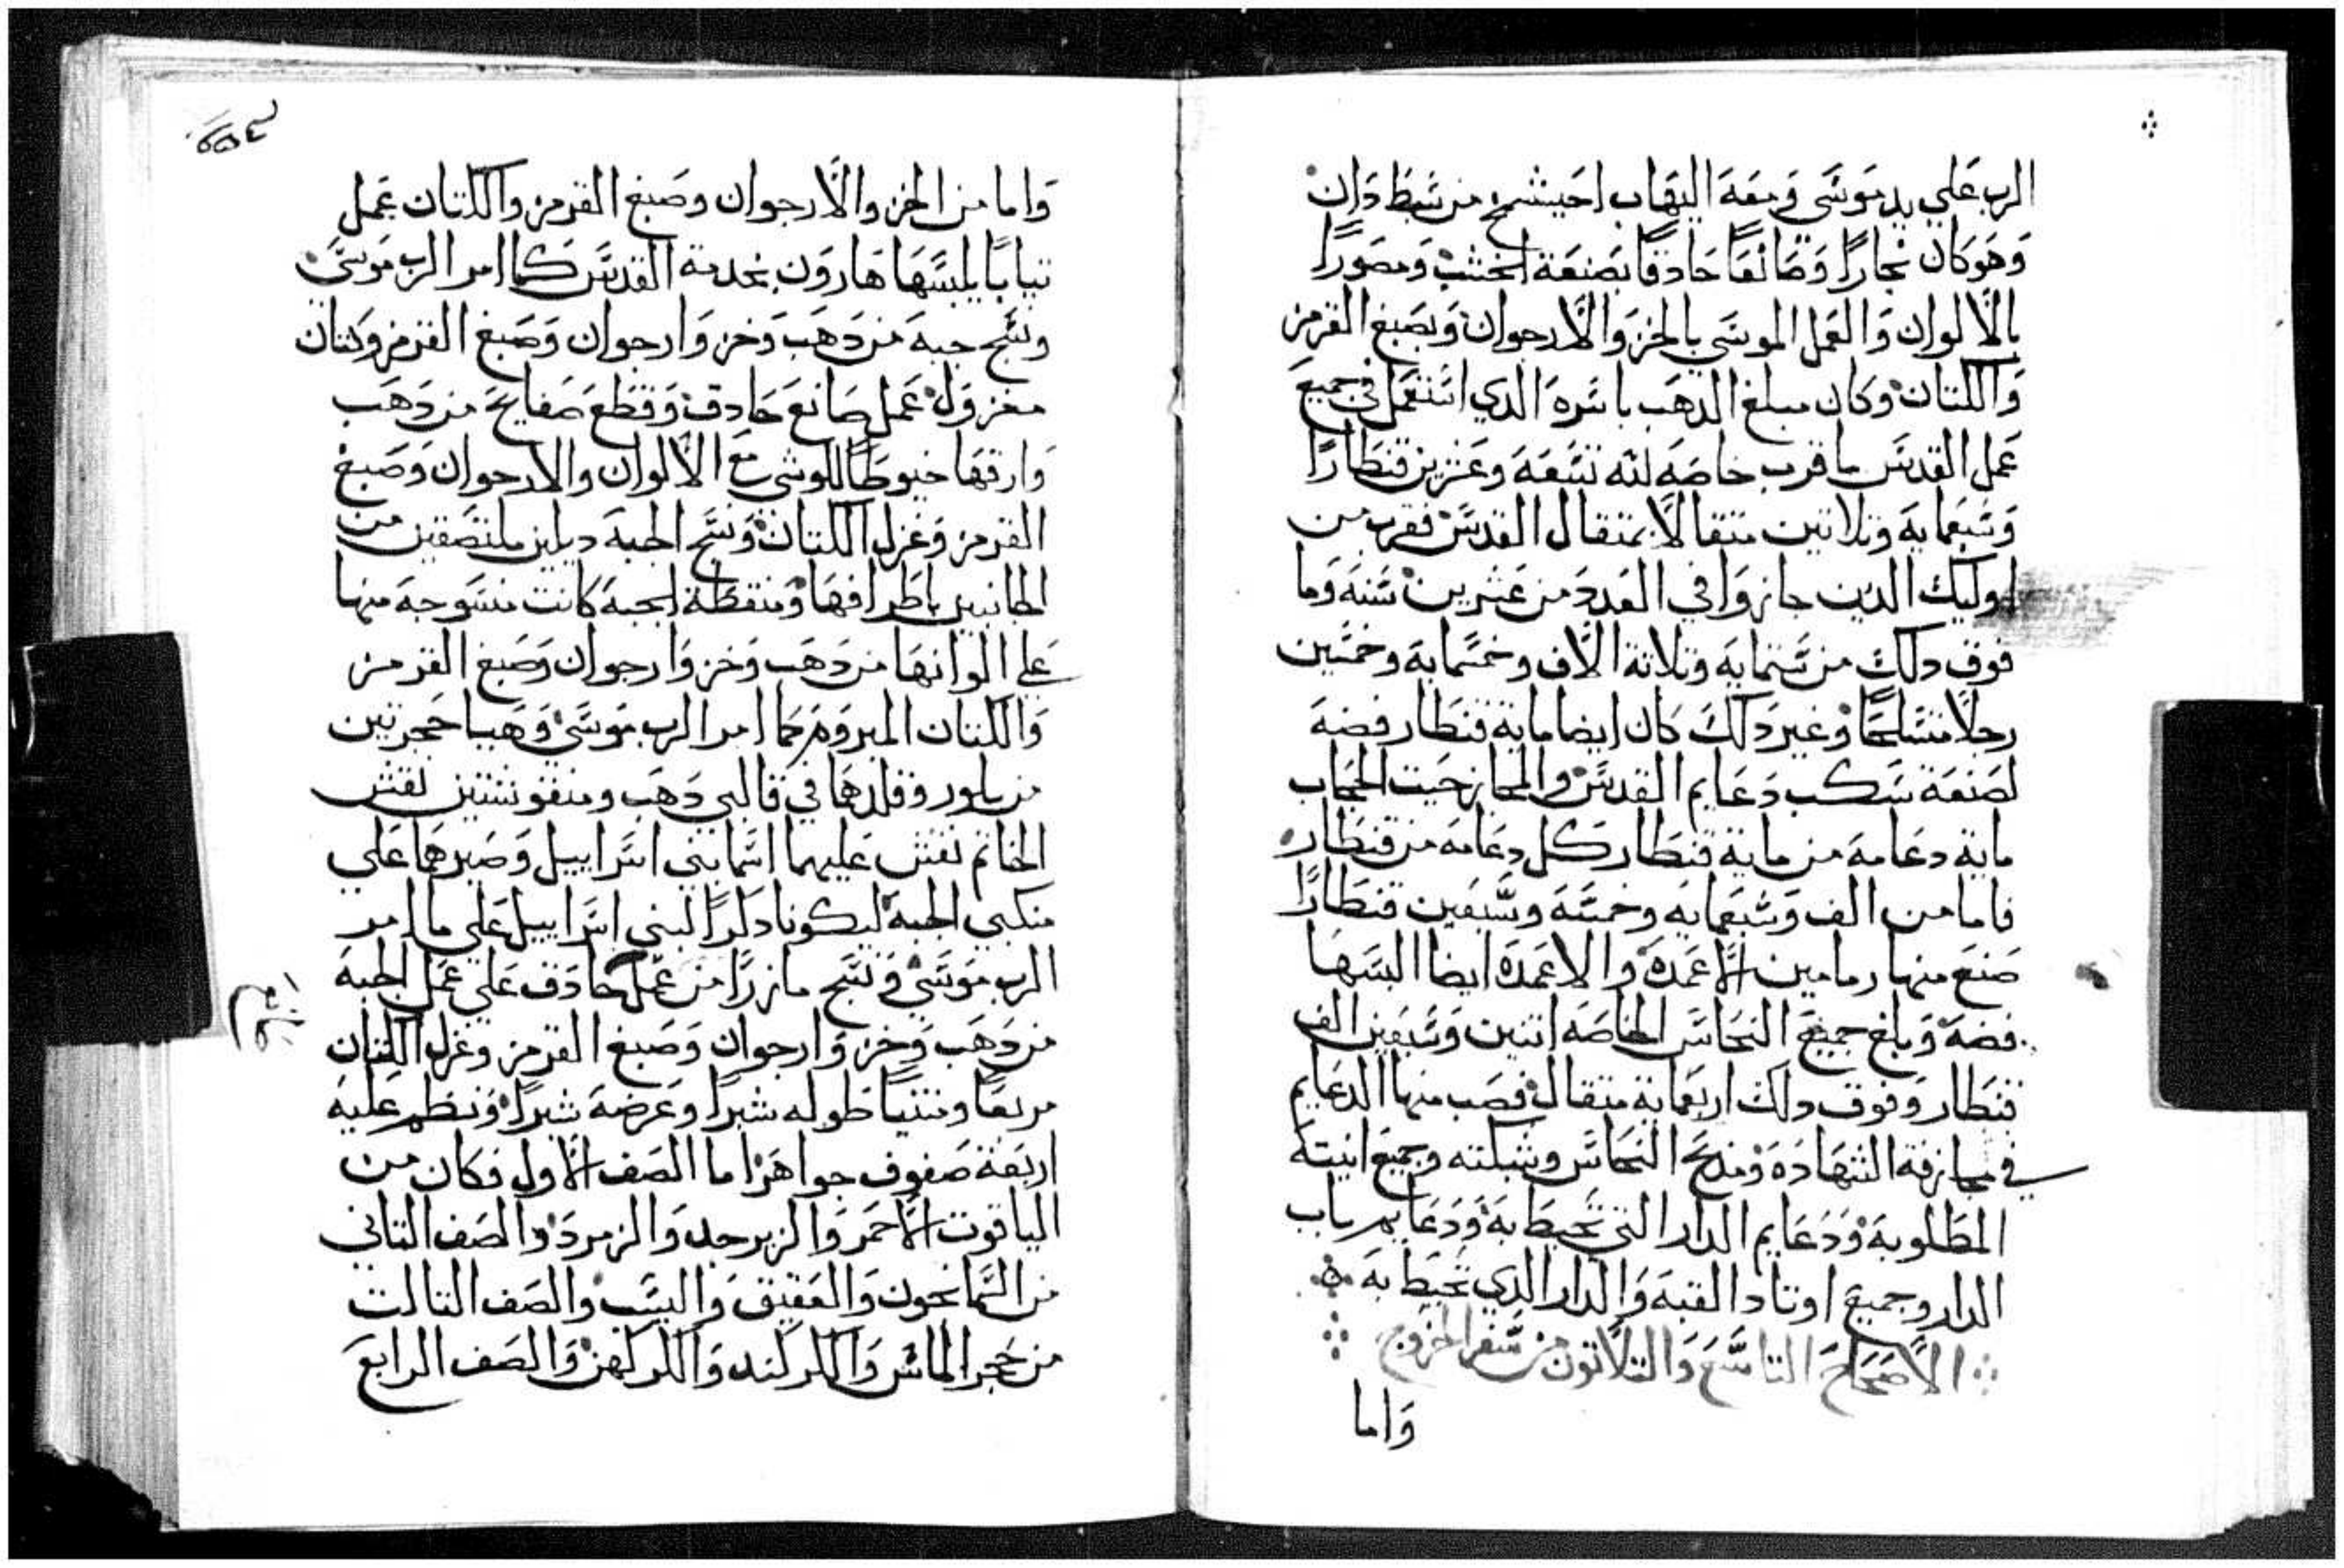 الرب علي يد موسَي ومعَه اليهاب احيشمخ من سَبط دَان
وَهوَ كان نجارًا وَصَائغًا حَادقًا بصَنعَة الخشب وَمصَورًا
بالألوان وَالعَمل الموسَي بالخز وَالأرجوان وَبصَبغ القرمز
وَالكتان وكان مبلغ الدهَب باسَره الدي استعمَل في جميعَ
عَمل القدسَ ما قرب خاصَه لله تسَعَة وعَشرين قنطارًا
وَسَبعَمايَه وَتلاتين متقالاً بمتقال القدسَ فقرب من
اوليك الدين جازوَا في العَدد من عَشرين سَنه وَما
فوق دلك من سَتمايه وتلاتة الاف وخمسَمايه وخمسَين
رجلاً متسَلحًا وَغير دَلك كان ايضا ماية قنطار فضه
لصَنعَة سَكب دَعَايم القدسَ والمجاز حَيت الحجاب
ماية دعَامة من ماية قنطار كل دعَامه من قنطار
فاما من الف وَسَبعَمايه وخمسَه وسَبعَين قنطارًا
صَنعَ منها رمامين الأعَمدَة والاعَمدَة ايضا البسَهَا
فضه وَبلغ جميعَ النحاسَ الخاصَه اتنين وَسَبعَين الف
قنطار وَفوق دلك اربعَماية متقال فصَب منها الدعَايم
في مجازفة الشهَادَه وَمدبح النحاسَ وشبكته وجميعَ انيته
المطلوبة وَدَعَايم الدار التي تحيط به وَدَعَايم باب
الدار وجميعَ اوتاد القبَه وَالدار الدي تحيط به
الاصَحَاحَ التاسَعَ وَالتلاتون من سَفر الخروج
وَاما
وَاما من الخز والأرجوان وصَبغ القرمز والكتان عَمل
تيابًا يلبسَهَا هَاروَن بخدمة القدسَ كما امر الرب موَسَي
ونسَج جبة من دَهَب وَخز وَارجوان وَصَبغ القرمز وكتان
مغزوَل عَمل صَانعَ حَادق وَقطعَ صَفايحَ من دَهَب
وَارقهَا خيوطًا للوشي معَ الألوان والارجوان وَصَبغ
القرمز وَغزل الكتان وَنسَج الجبة ديلين ملتصَقين من
الجانبين باطرافهَا وَمنقطة الجبة كانت منسَوجة منها
عَلي الوانهَا من دَهَب وَخز وَارجوان وَصَبغ القرمز
وَالكتان المبروَم كما امر الرب موَسَي وَهَيا حَجرتين
من بلور وقلدهَا في قالبي دَهَب ومنقوشتين نقش
الخاتم نقش عَليهما اسَما بني اسَراييل وَصَيرهمَا عَلي
منكبي الجبة ليكونا دَكرًا لبني اسَراييل عَلي ما امر
الرب موَسَي وَنسَج مازرًا من عَمل حَادَق عَلي عَمل الجبة
من دَهَب وَخز وَارجوان وَصَبغ القرمز وغزل الكتان
مربعًا ومتنيًا طوله شبرًا وعَرضهَ شبرًا وَنظم عَليه
اربعَة صَفوف جواهَر اما الصَف الأول فكان من
الياقوت الأحمَر وَالزبرجد وَالزمردَ وَالصَف التاني
من السَمانجون وَالعَقيق وَاليشَب وَالصَف التالت
من حَجر الماسَ وَالكركند وَالكركهن وَالصَف الرابعَ